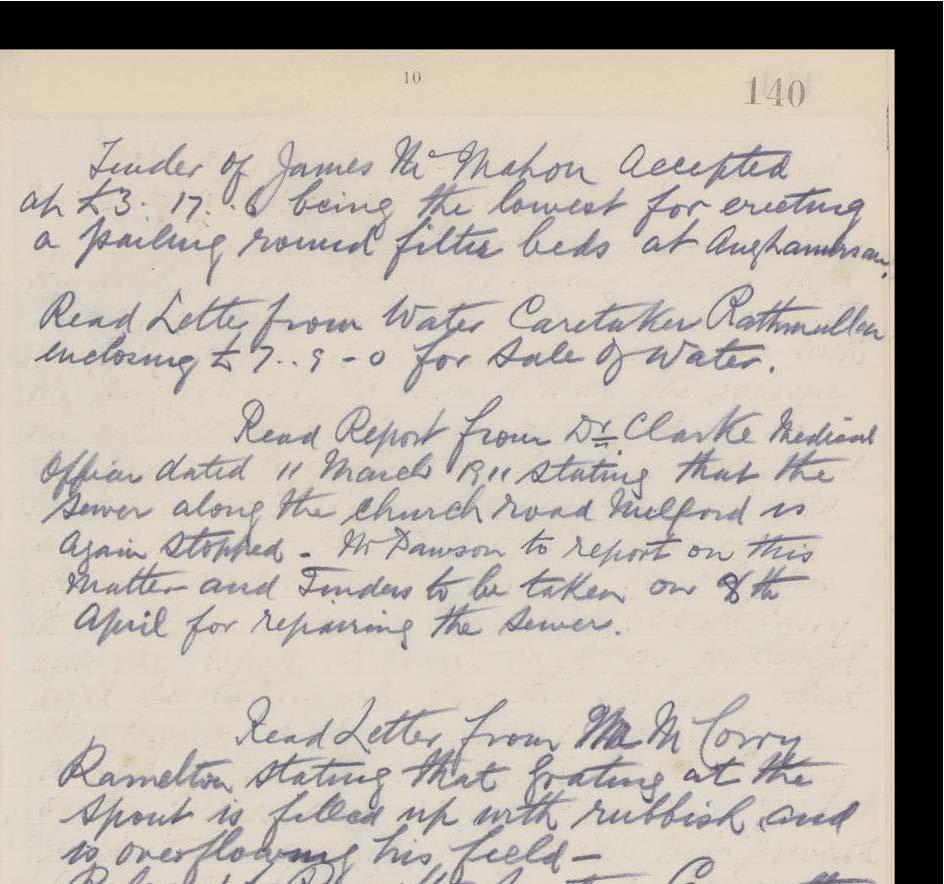 10
140
Tinder of James Mc Mahon Accepted
at £3. 17. .6 being the lowest for erecting
a pailing round filter beds at
Read Letter from Water Caretaker Rathmullen
enclosing £7..9-0 for sale of Water.
Read Report from Dr Clarke Medical
Officer dated 11 March 1911 stating that the
Sewer along the church road Milford is
again stopped - Mr Dawson to report on this
matter and Tinders to be taken on 8th
April for repairing the sewer.
Read Letter from M Corry
Ramelton stating that grating at the
spout is filled up with rubbish and
is overflowing his field-